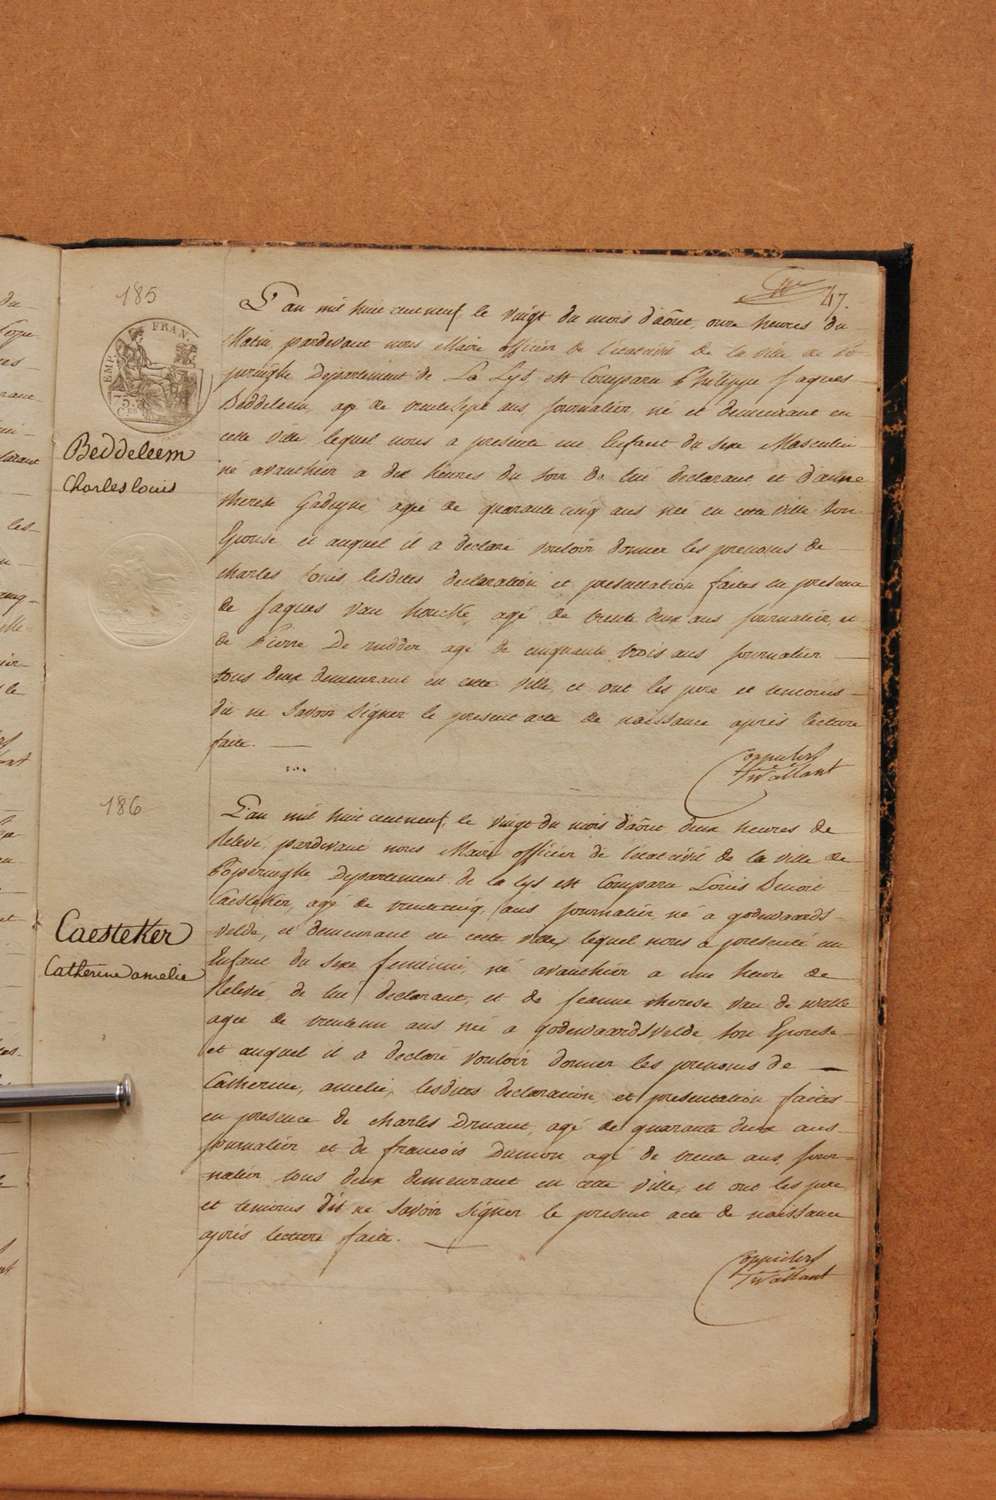 47.
185
EMP. FRAN.
Beddeleem
Charles louis
L'an mil huit cent neuf le vingt du mois d'aôut, onze heures du
Matin pardevant nous Maire officier de l'etat civil de la ville de Po-
peringhe Département de La Lys est Comparu Philippe Jaques
Beddeleem, agé de trente sept ans journalier, né et demeurant en
cette ville lequel nous a presenté un Enfant du sexe Masculin
né avanthier a dix heures du soir de lui declarant et d'anne
therese agée de quarante cinq ans née en cette ville son
Epouse et auquel il a declaré vouloir donner les prenoms de
charles louis, lesdites declaration et presentation faites en presence
de Jaques Van houcke, agé de trente deux ans journalier, et
de Pierre De rudder agé de cinquante trois ans journalier
tous deux demeurant en cette ville, et ont les pere et temoins
dit ne Savoir Signer le present acte de naissance après lecture
faite.
Vaillant
186
Caesteker
Catherine amelie
L'an mil huit cent neuf, le vingt du mois d'aôut deux heures de
Relevé, pardevant nous Maire officier de l'etat civil de la ville de
Poperinghe Département de la Lys est Comparu Louis Benoit
Caesteker, agé de trente cinq ans journalier né a godewaards-
velde, et demeurant en cette ville, lequel nous a presenté un
Enfant du sexe feminin, né avanthier a une heure de
Relevée, de lui declarant, et de jeanne therese van de walle
agée de trente un ans née a godewaardsvelde son Epouse
et auquel il a declaré vouloir donner les prenoms de
Catherine, amelie, lesdites declaration et presentation faites
en presence de charles Druant, agé de quarante deux ans
journalier et de francois Dumon agé de trente ans jour-
nalier, tous deux demeurant en cette ville, et ont les pere
et temoins dit ne Savoir Signer le present acte de naissance
après lecture faite.
Vaillant